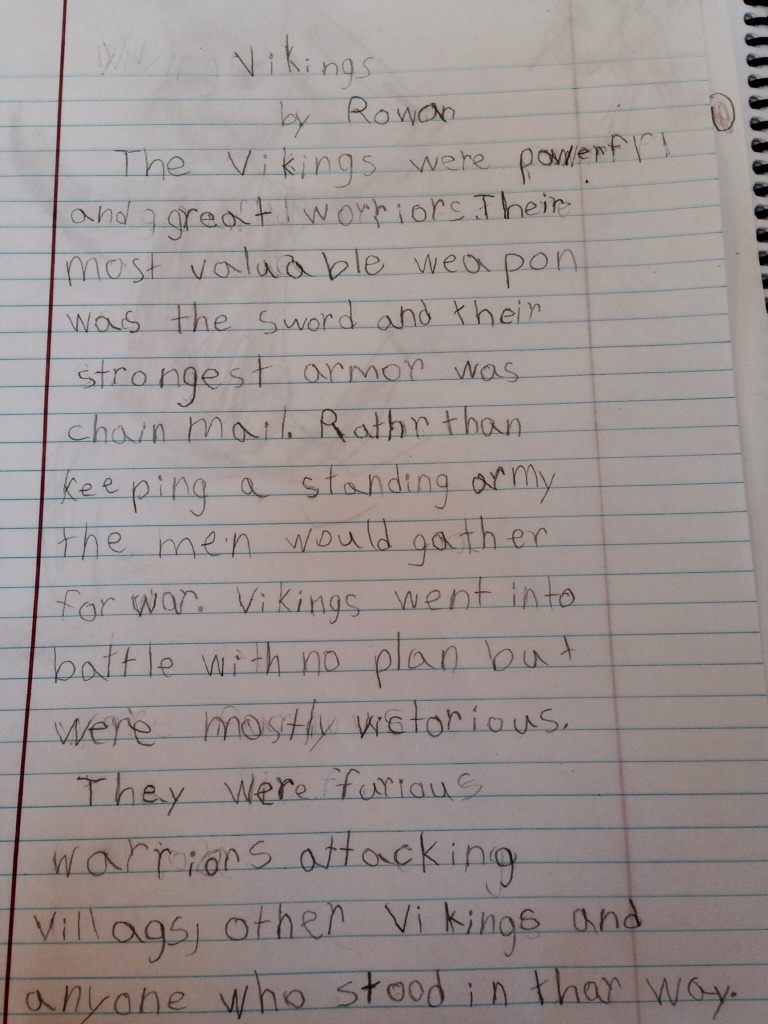 Vikings
by Rowan
The Vikings were powerful
and great worriors. Their
most valuable weapon
was the sword and their
strongest armor was
chain mail. Rathr than
keeping a standing army
the men would gather
for war. Vikings went into
battle with no plan but
were mostly victorious.
They were furious
warriors attacking
Villags, other Vikings and
anyone who stood in thar way.